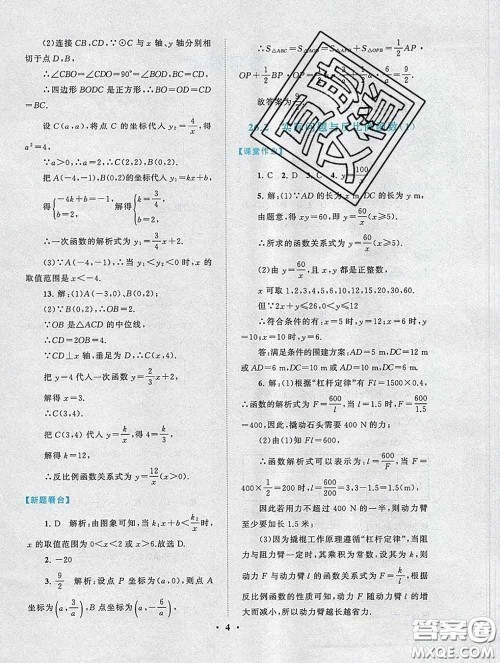 (2)连接 CB,CD,∵⊙C 与 x 轴、y 轴分别相
切于点 D,B,
∴∠CBO=∠CDO=90°=∠BOD,BC=CD.
∴四边形 BODC 是正方形,∴BO=OD=DC=
设 C(a,a),将点 C 的坐标代入 y₂=4/x,得
a²=4.
∵a>0,∴a=2.∴C(2,2),B(0,2).
把 A(-4,-1),B(0,2)的坐标代入 y₁=kx+b
中,得
解得
∴一次函数的解析式为 y₁=3/4x+2.
(3)∵A(-4,-1),∴当 y₁<y₂<0 时,x 的
取值范围是 x<-4.
13. 解:(1)A(-3,0),B(0,2)
(2)∵B(0,2),∴OB=2.
∵OB 是△ACD 的中位线,
∴CD=2OB=4.
∵CD⊥x 轴,垂足为 D,
∴C 点的纵坐标为 4.
把 y=4 代入一次函数 y=2/3x+2,得
4=2/3x+2.
解得 x=3.
∴C(3,4).
把 C(3,4)代入 y=k/x,得 4=k/3.
解得 k=12.
∴反比例函数关系式为 y=12/x(x>0).
【新题看台】
1. D 解析:由图象可知,当 k₁x+b<k₂/x 时,x
的取值范围为 0<x<2 或 x>6.故选 D.
2. -20
3. 9/2 解析:设点 P 坐标为(a,0),则点 A
坐标为(a,3/a),B 点坐标为(a,-6/a),
∴S△ABC=S△APO+S△OPB=1/2 AP·
OP+1/2 BP·
故答案为
【课堂作业】
1. C 2. D 3. C 4. y=100/
5. 解:(1)∵AD 的长为 x m,DC 的长为 y m,
由题意,得 xy=60,即 y=60/x(x≥5).
∴所求的函数关系式为 y=60/x(x≥5).
(2)由 y=60/x,且 x,y 都是正整数,
x 可取 1,2,3,4,5,6,10,12,15,20,30,60.
但∵2x+y≤26,0<y≤12
∴符合条件的有:x=5 时,y=12;x=6 时,y=
10;x=10 时,y=6.
答:满足条件的围建方案:AD=5 m,DC=12 m
或 AD=6 m,DC=10 m 或 AD=10 m,DC=6 m.
6. 解:(1)根据“杠杆定律”有 Fl=1500×0.4,
∴函数的解析式为 F=600/l,当 l=1.5 时,F=600/1.5
=400,因此,撬动石头需要 400 N 的力;
(2)由(1)知 Fl=600,
∴函数解析式可以表示为:l=600/F,当 F=400
×1/2=200 时,l=3,3-1.5=1.5(m),
因此若用力不超过 400 N 的一半,则动力臂
至少要加长 1.5 米;
(3)因为撬棍工作原理遵循“杠杆定律”,当阻
力与阻力臂一定时,其乘积为常数,设其为 k,则动
力 F 与动力臂 l 的函数关系式为 F=k/l(k>0),根据
反比例函数的性质可知,动力 F 随动力臂 l 的增
大而减小,所以动力臂越长越省力.
·4·
答案圈
MXQE.COM